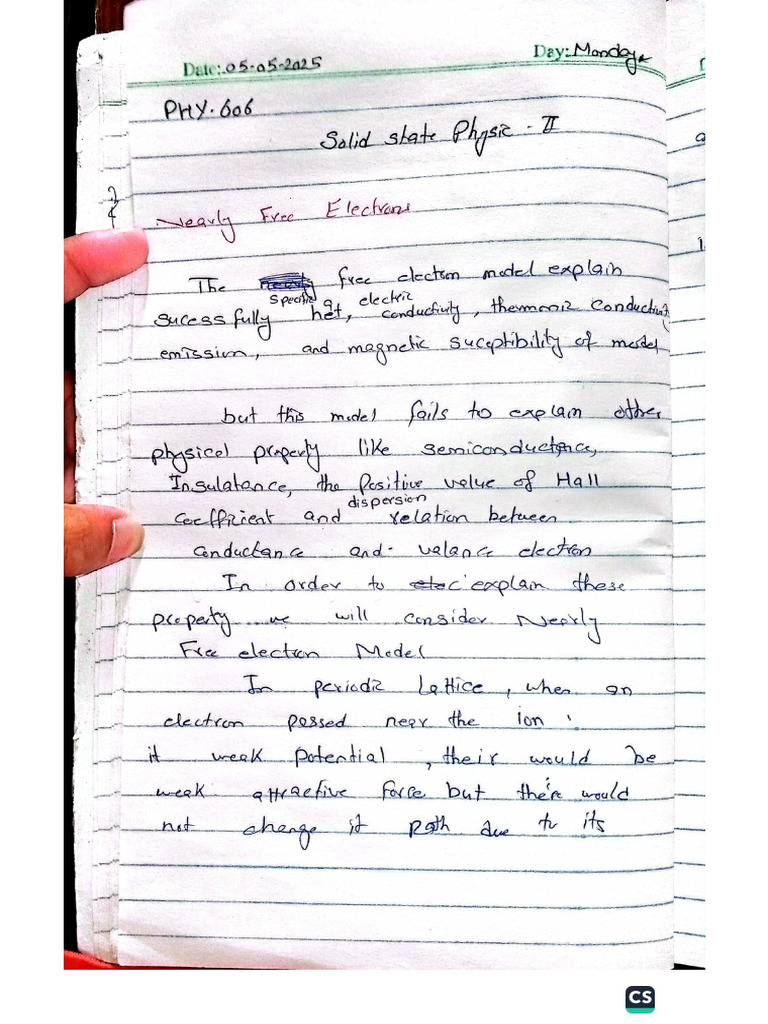 Date: 05-05-2025
Day: Monday
PHY-606
Solid state Physic - II
Nearly Free Electrons
The free electron model explain
sucessfully specific het, electric conductivity, thermoniz conductivity
emission, and magnetic suceptibility of model
but this model fails to explain other
physical property like semiconductance,
Insulatance, the Positive value of Hall
coefficient and dispersion relation between
conductance and valance electron
In order to explain these
property we will consider Nearly
Free electron Model
In periodic Lattice, when an
electron passed near the ion
it weak potential, their would be
weak attractive force but there would
not change it path due to its
CS